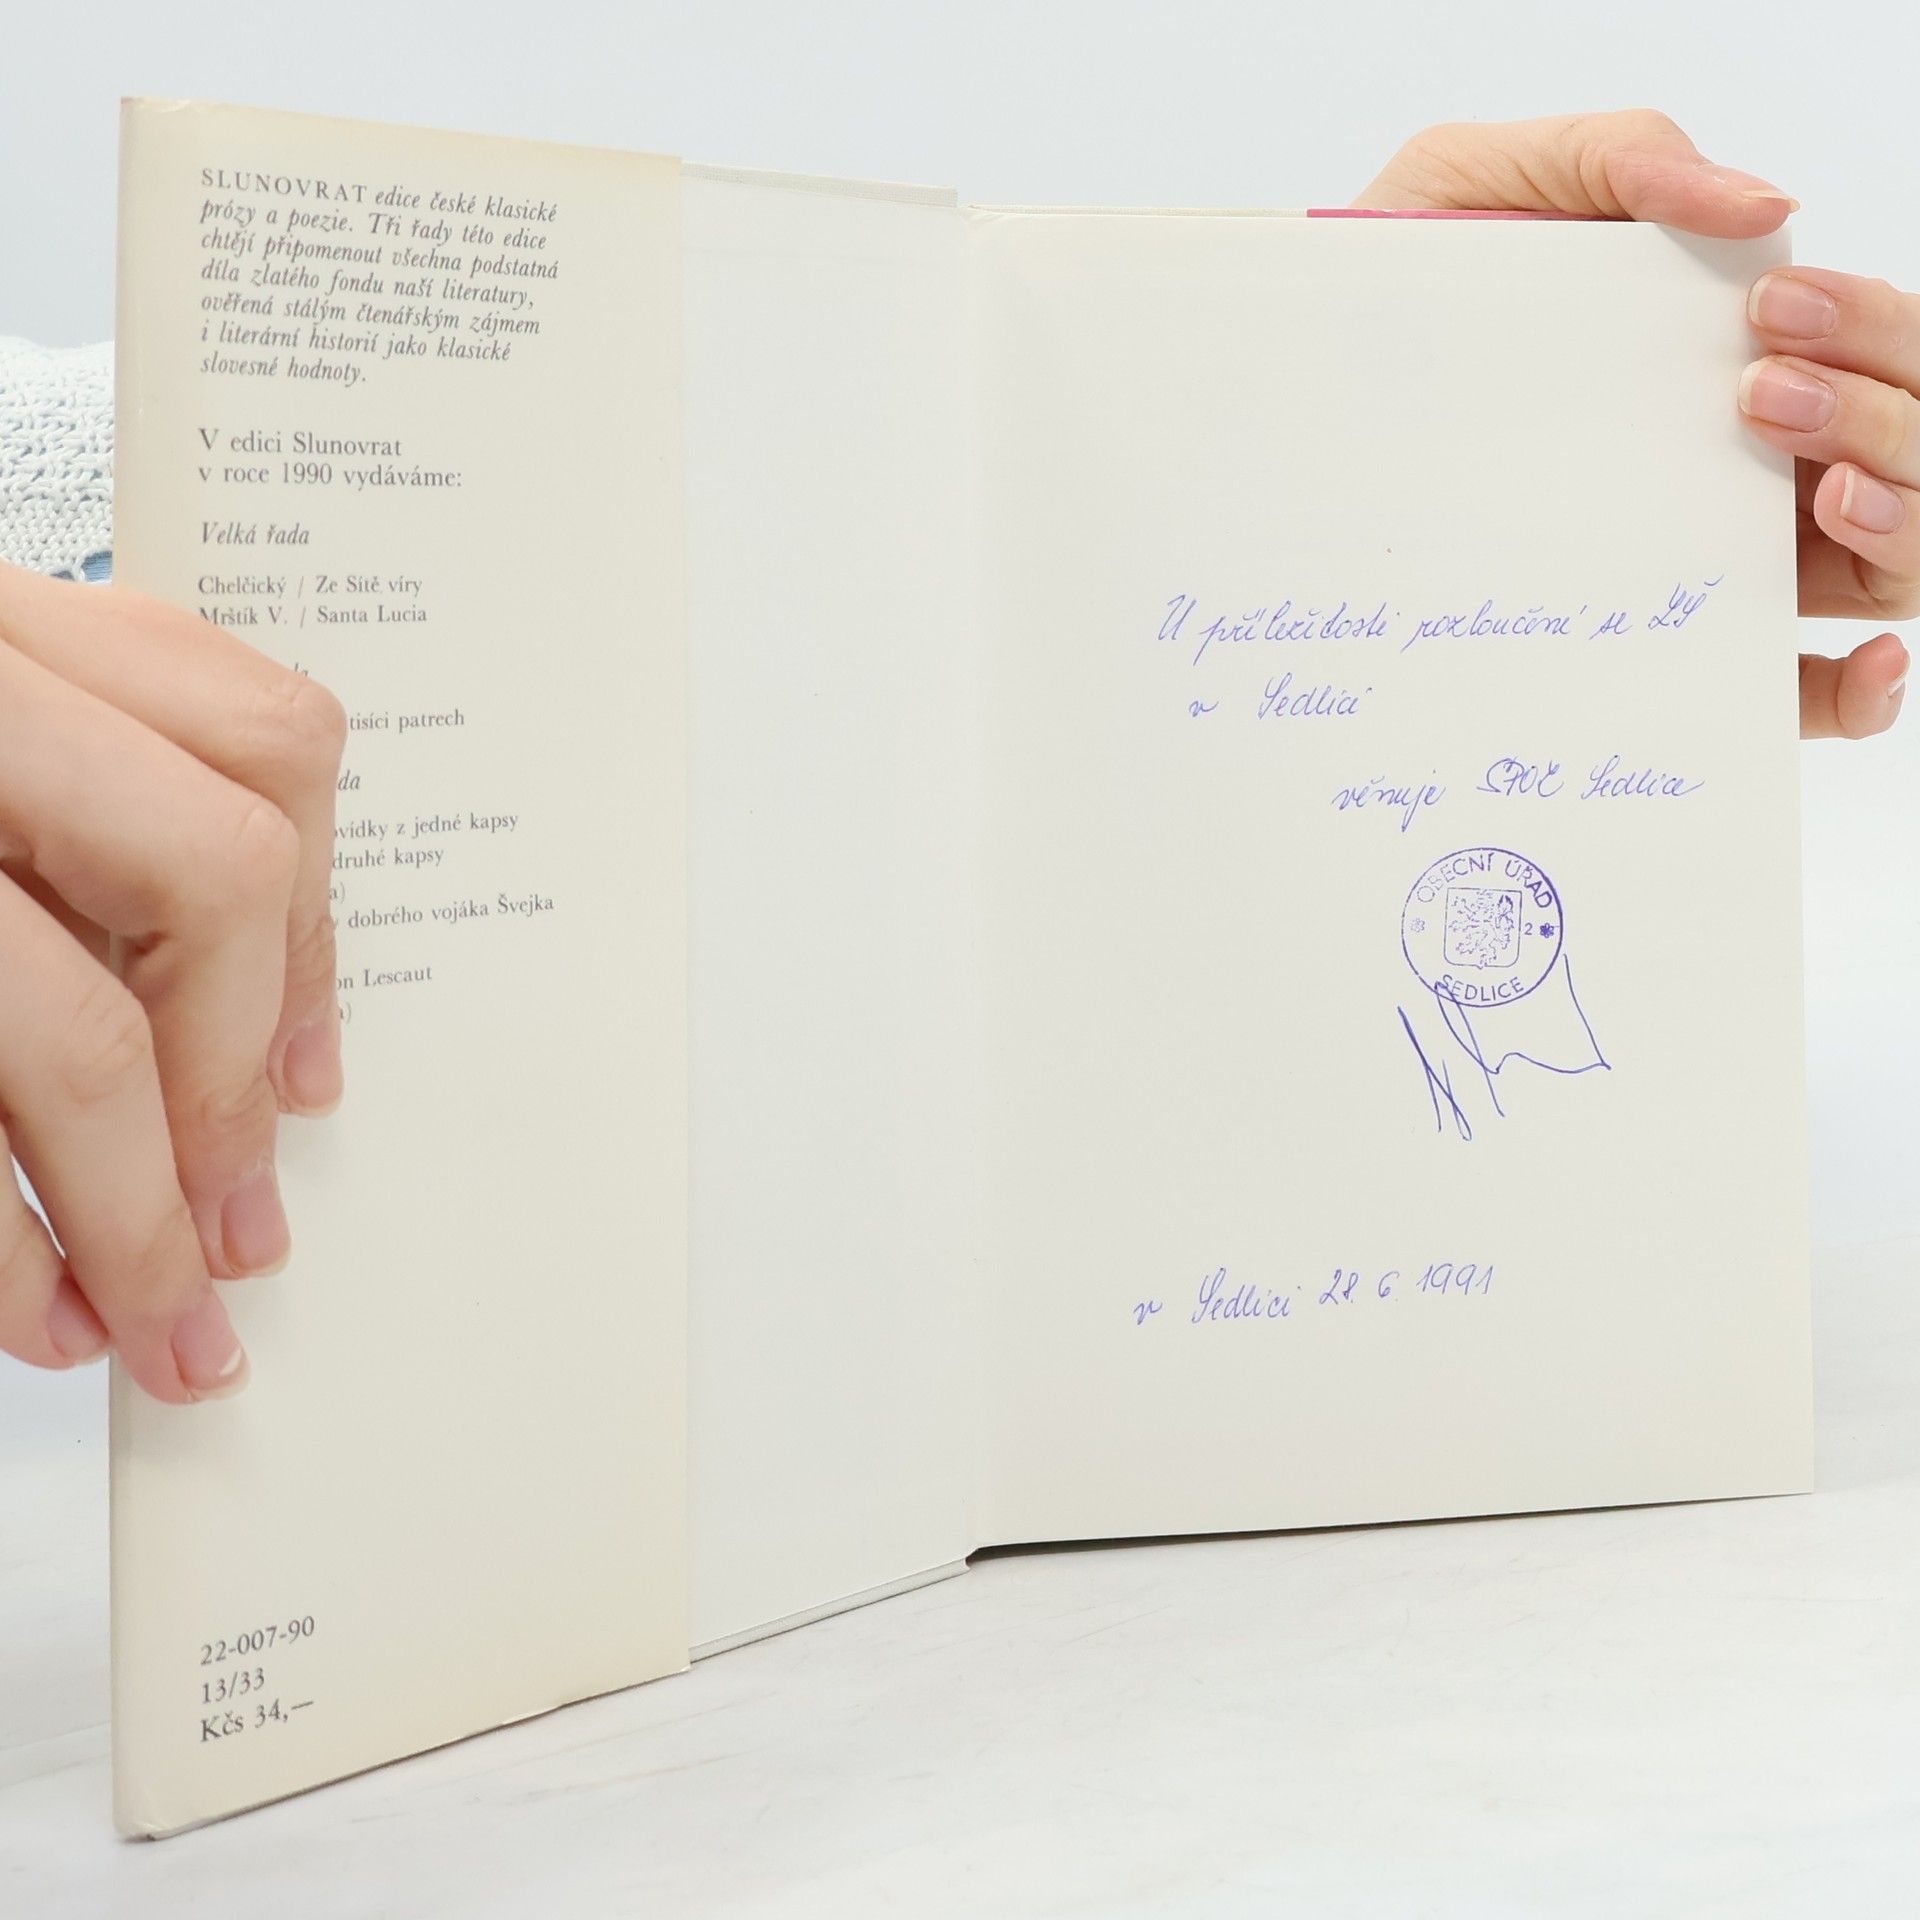 SLUNOVRAT edice české klasické
prózy a poezie. Tři řady této edice
chtějí připomenout všechna podstatná
díla zlatého fondu naší literatury,
ověřená stálým čtenářským zájmem
i literární historií jako klasické
slovesné hodnoty.
V edici Slunovrat
v roce 1990 vydáváme:
Velká řada
Chelčický / Ze Sítě víry
Mrštík V. / Santa Lucia
tisíci patrech
z jedné kapsy
druhé kapsy
dobrého vojáka Švejka
Lescaut
22-007-90
13/33
Kčs 34,—
U příležitosti rozloučení se ZŠ
v Sedlici
věnuje SPOZ Sedlice
OBECNÍ ÚŘAD
2
SEDLICE
v Sedlici 28. 6. 1991